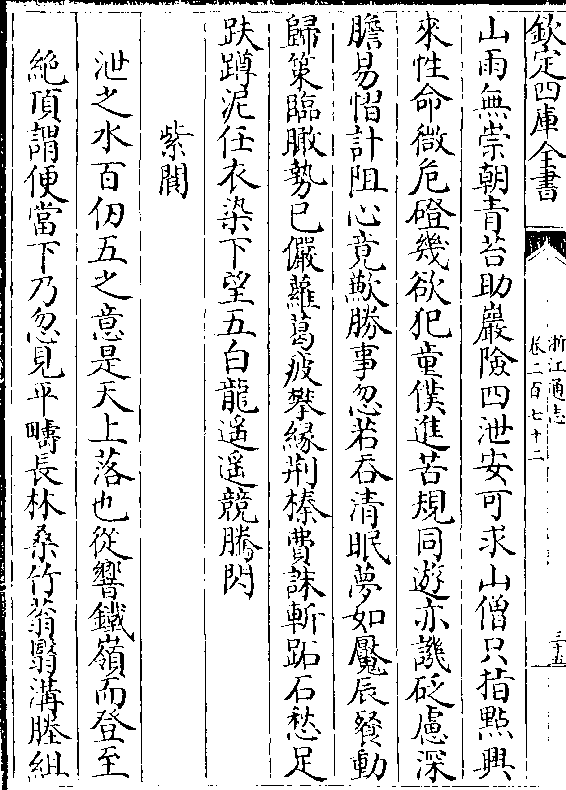 欽定四庫全書
浙江通志
卷二百七十二
三十五
山雨無崇朝青苔助巖險四泄安可求山僧只指點興
來性命微危磴幾欲犯童僕進苦規同遊亦譏砭慮深
膽易慴計阻心竟歉勝事忽若吞清眠夢如魘辰餐動
歸策臨瞰勢已儼蘿葛疲攀緣荆榛費誅斬跖石愁足
趺蹲泥任衣染下望五白龍遥遥競騰閃
紫閬
泄之水百仞五之意是天上落也從響鐵嶺而登至
絶頂謂便當下乃忽見平疇長林桑竹蓊翳溝塍組